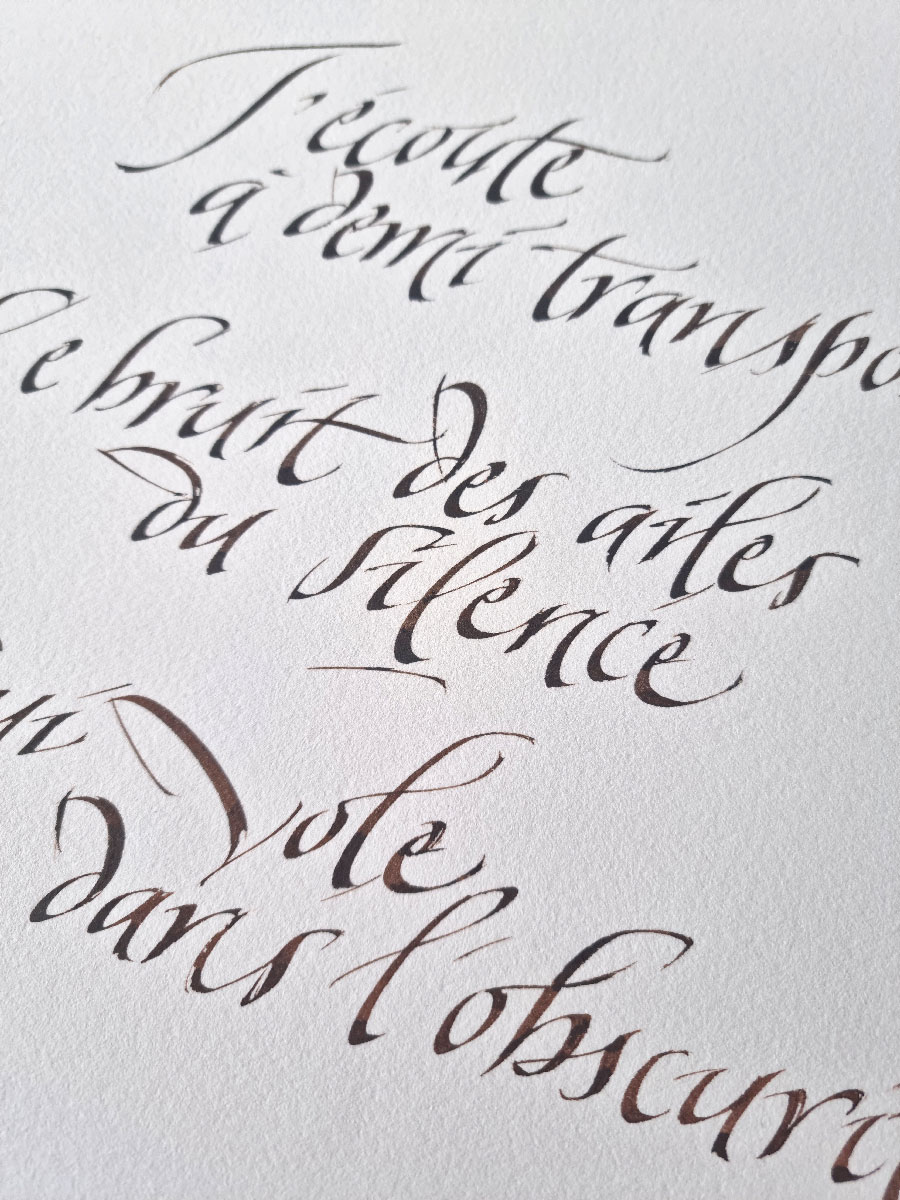 J'écoute
à demi transpo
le bruit des ailes
du silence
ui vole
dans l'obscuri